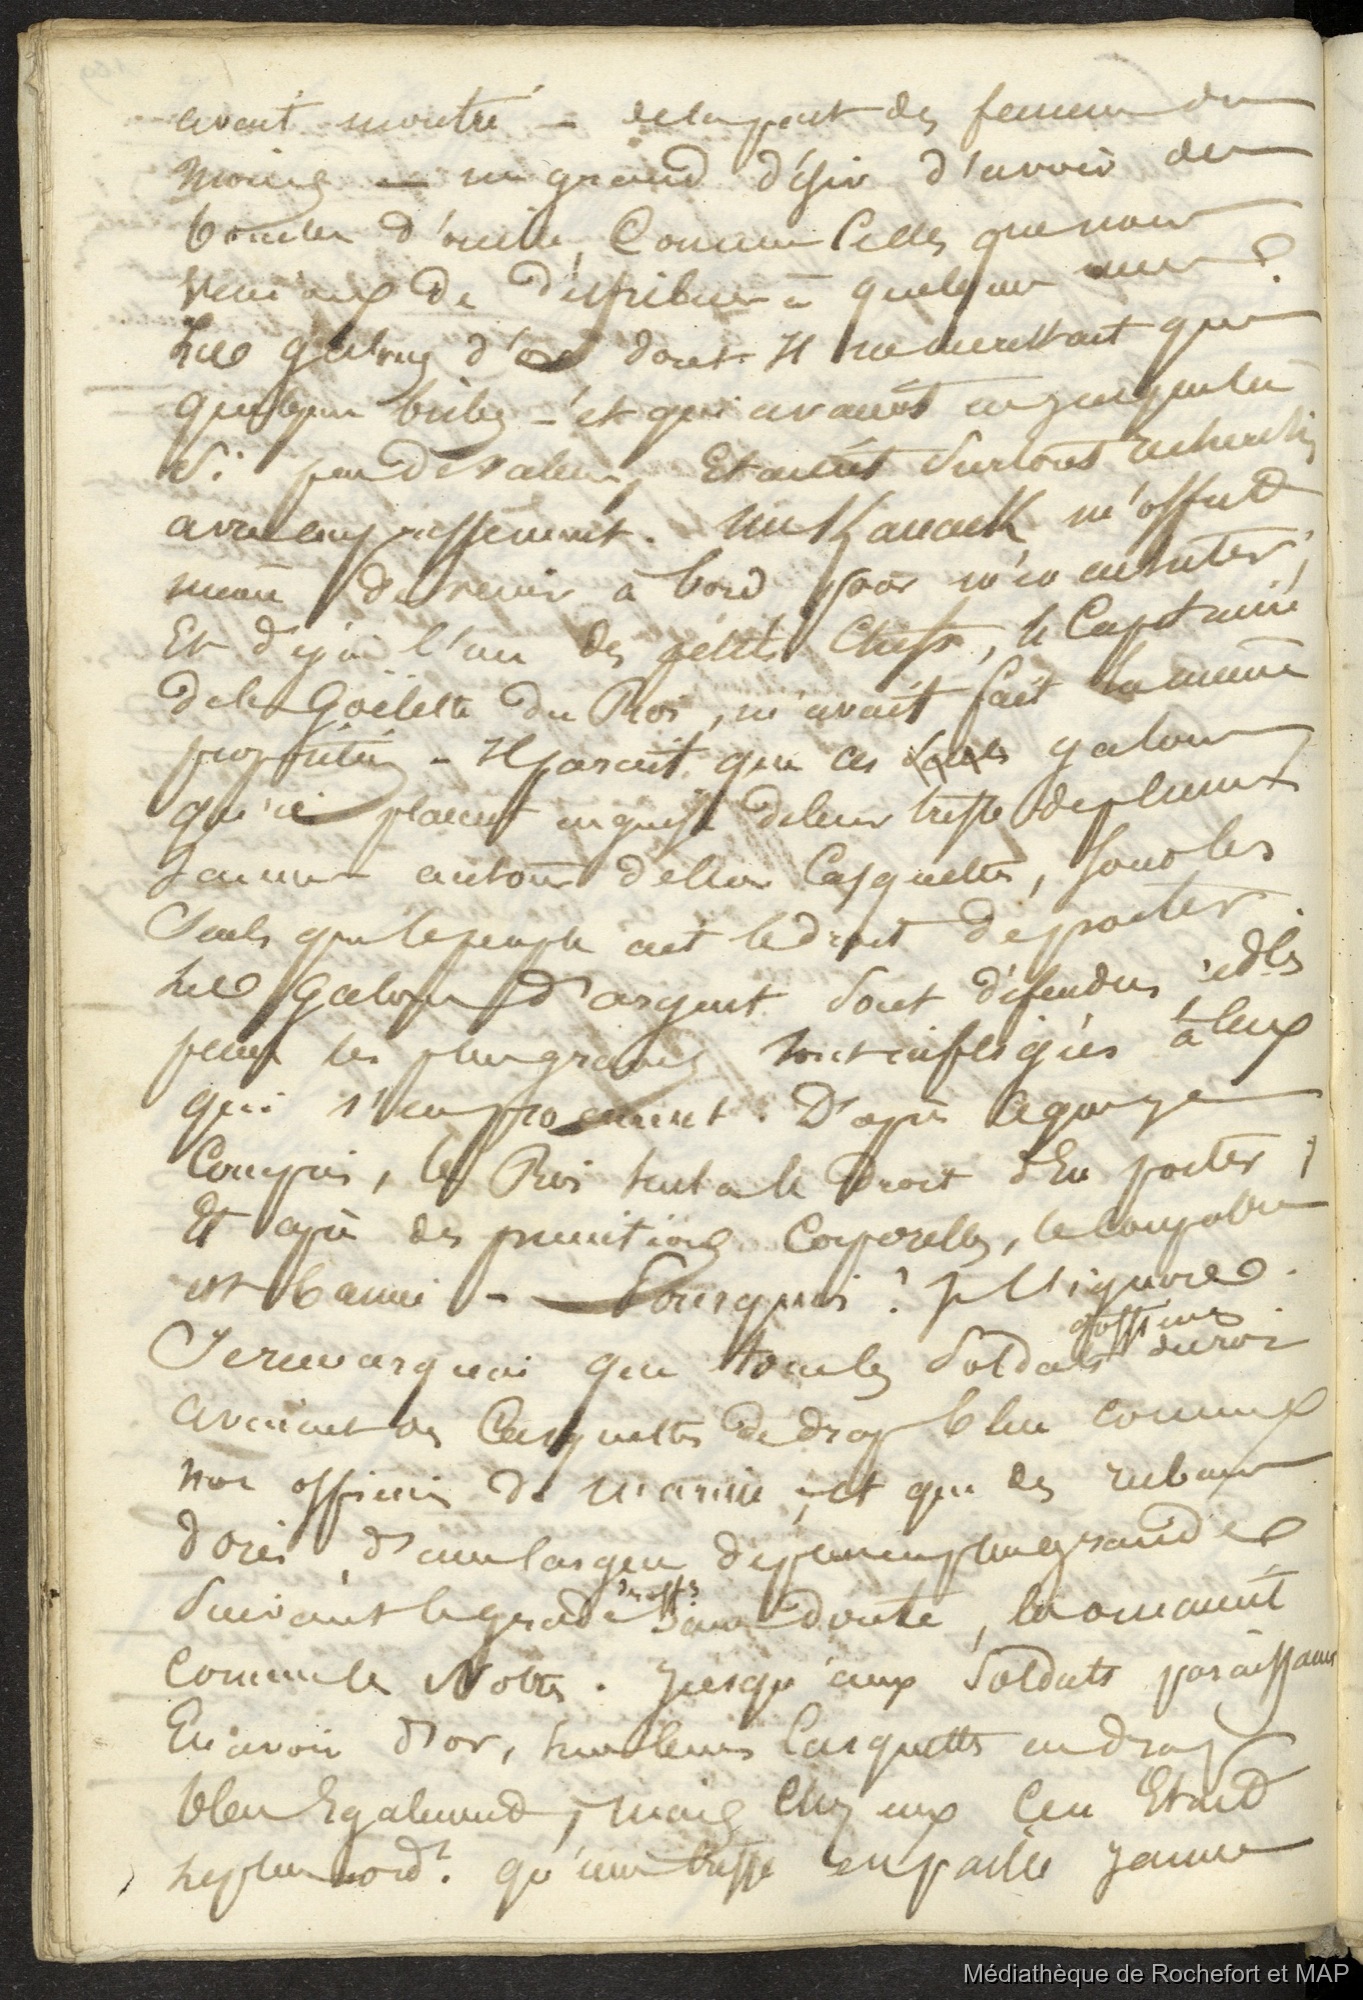 avait montré - de la part des femmes du
moins — un grand désir d'avoir des
boucles d'oreille, Comme Celles que nous
venions de distribuer à quelques unes.
Les galons d'or dont Il ne me restait que
quelques bribes - et qui avaient eu jusque là
si peu de valeur, Etaient surtout recherchés
avec empressement. Un Kanack m'offrit
même de venir à bord pour m'en acheter;
Et déjà l'un des petits Chefs, le Capitaine
de la Goëlette du Roi, m'avait fait la même
proposition - Il parait que ces galons
qu'ils placent en guise de leur tresse de plumes
Jaunes autour de leur Casquettes, sont les
Seuls que le peuple ait le droit de porter
Les Galons d'argent sont défendus, et les
peines les plus graves sont infligées à ceux
qui s'en procurent. D'après ce que j'ai
Compris, le Roi seul a le Droit d'En porter;
Et après des punitions Corporelles, le coupable
est banni - Pourquoi? je l'ignore.
Je remarquai que tous les Soldats du roi
avaient des Casquettes de drap bleu comme
nos officiers de marine, et que des rubans
dorés, d'une largeur de plus en plus grande
suivant le grade sans doute, les ornaient
comme les Nôtres. Jusqu'aux Soldats paraissaient
En avoir d'or, sur leurs Casquettes en drap
bleu Egalement, mais chez eux Ce n'Etait
qu'une tresse en paille jaune